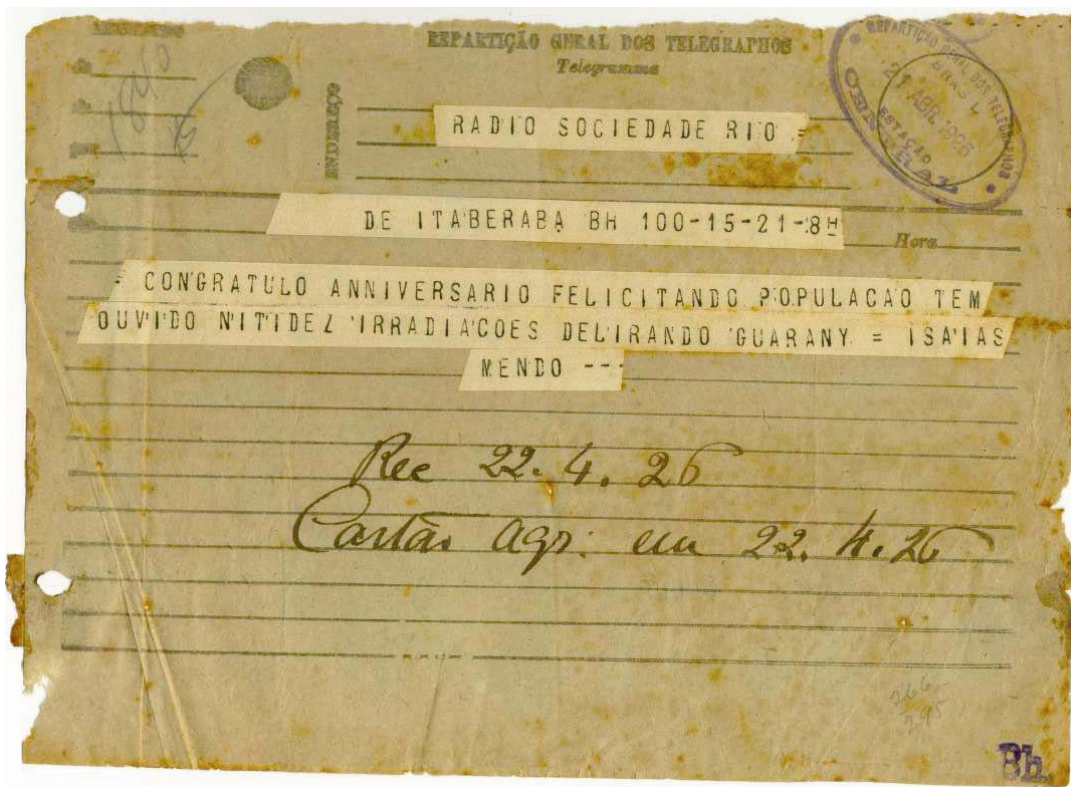 REPARTIÇÃO GERAL DOS TELEGRAPHOS
Telegramma
ENDEREÇO
REPARTIÇÃO GERAL DOS TELEGRAPHOS
BRASIL
21 ABR. 1926
ESTAÇÃO
CENTRAL
RADIO SOCIEDADE RIO =
DE ITABERABA BH 100-15-21-8H
Hora
= CONGRATULO ANNIVERSARIO FELICITANDO POPULACAO TEM
OUVIDO NITIDEZ IRRADIACOES DELIRANDO GUARANY = ISAIAS
MENDO ---
Rec 22.4.26
Cartão agr. em 22.4.26
266
295
Bh.